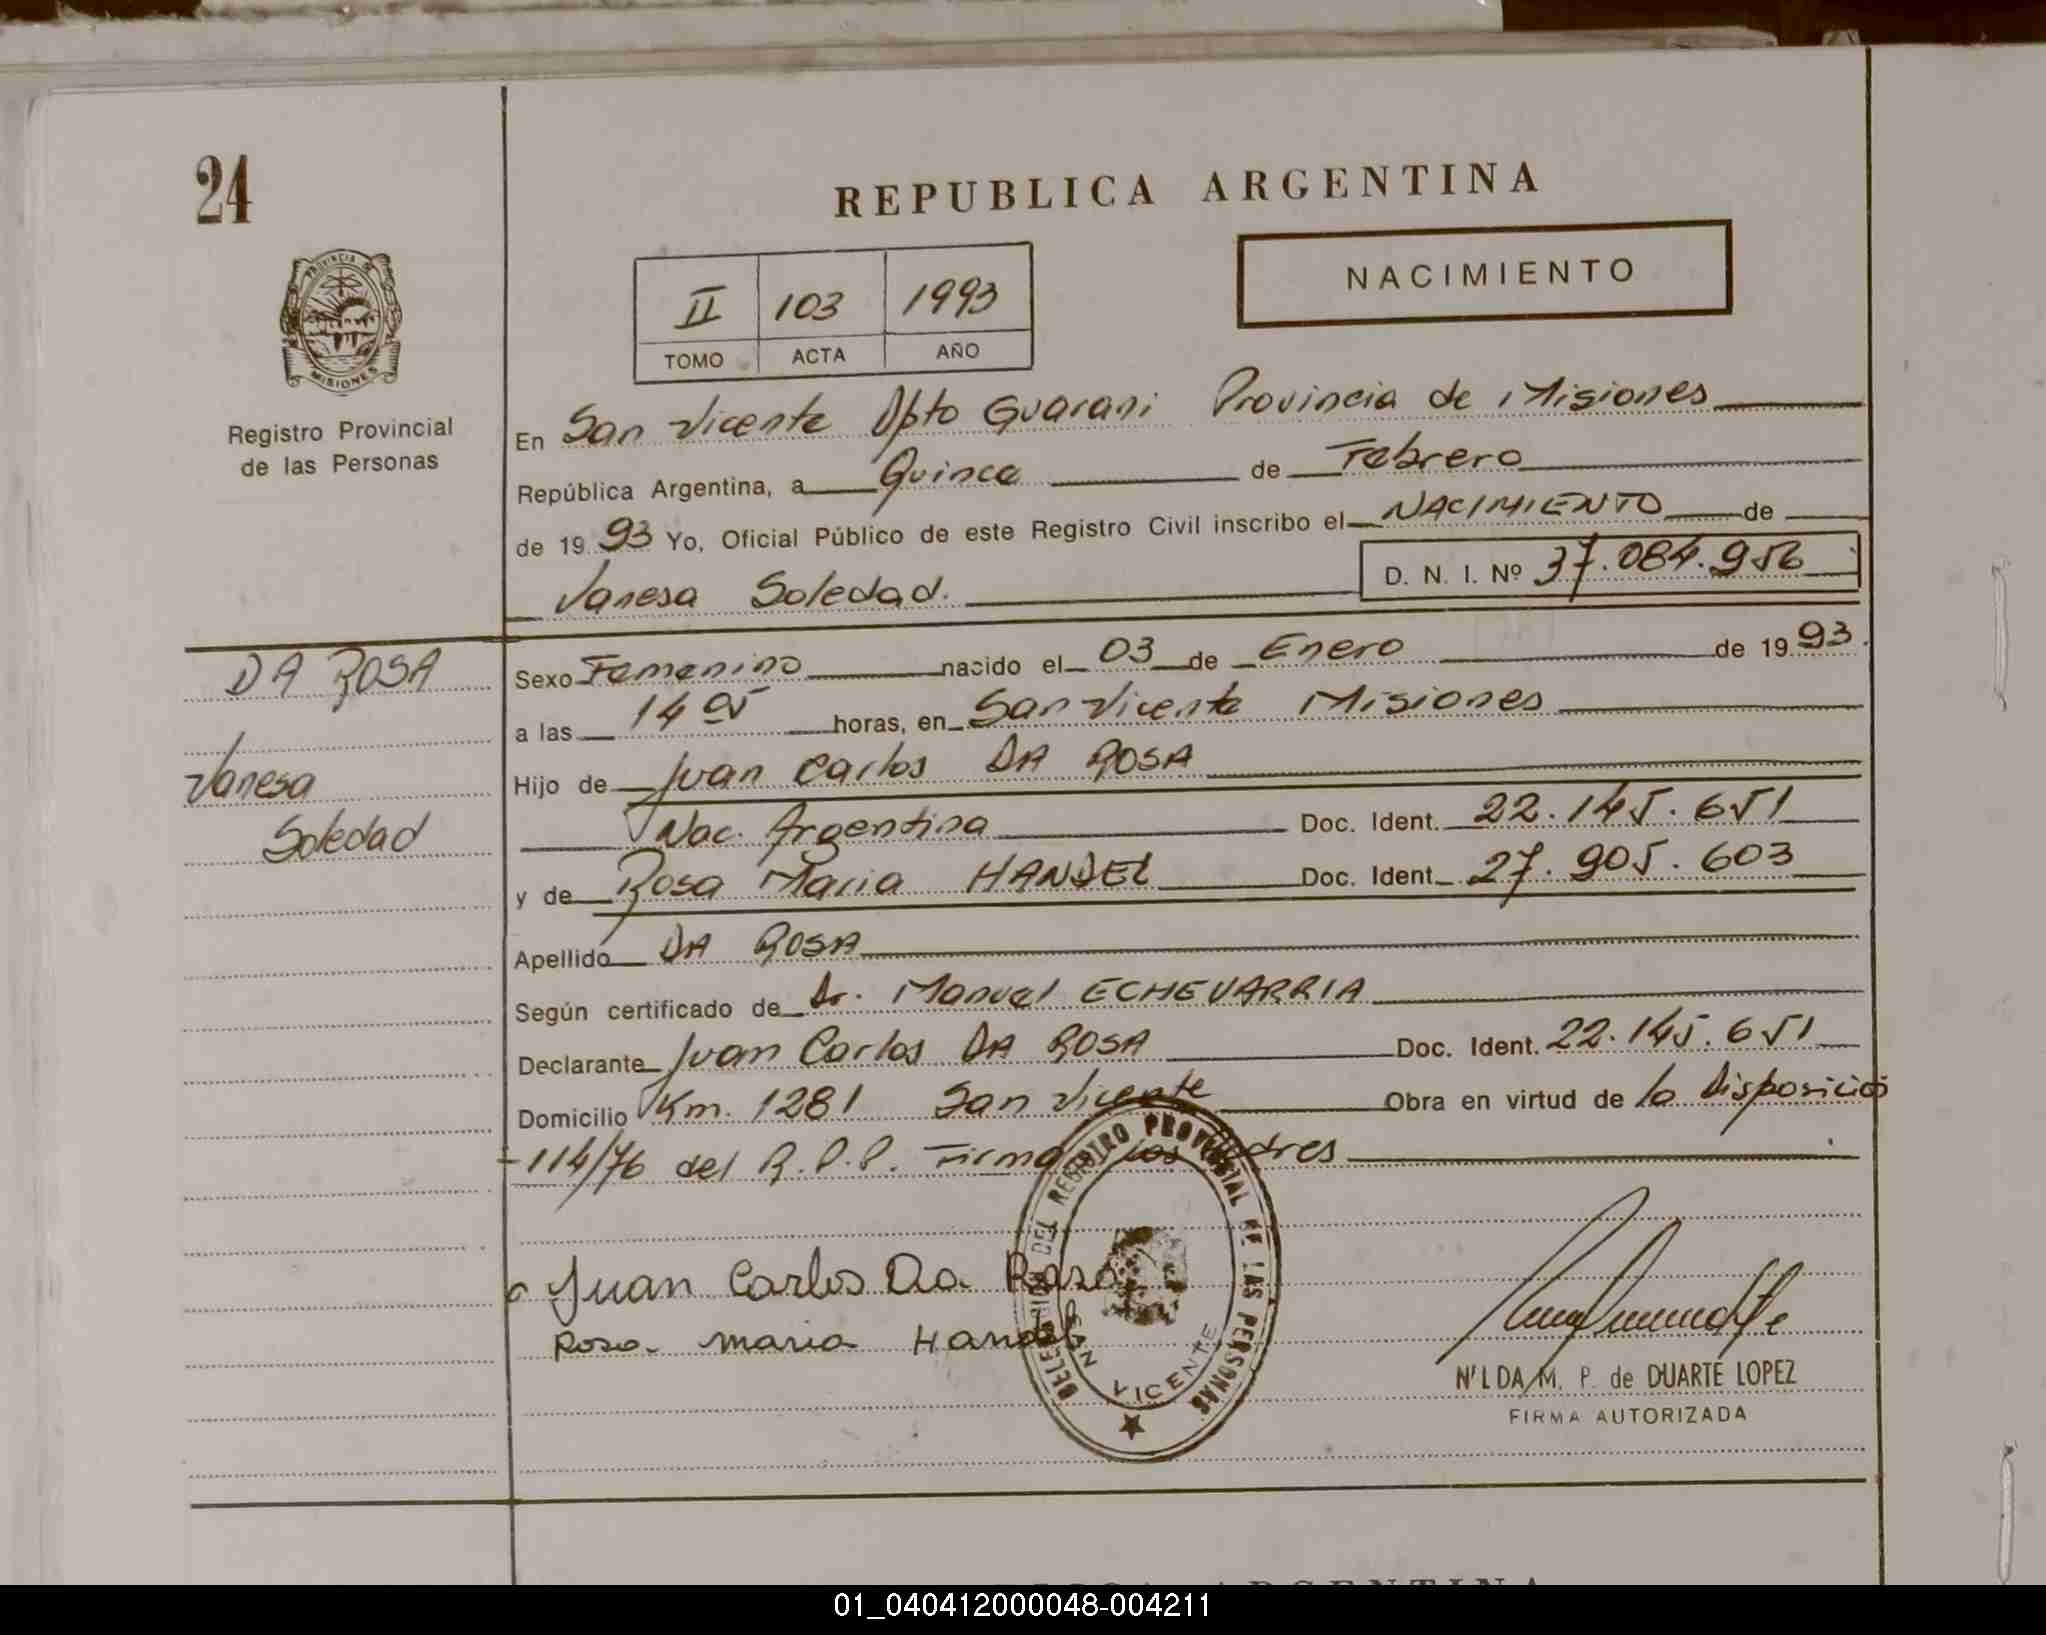 24
REPUBLICA ARGENTINA
NACIMIENTO
II 103 1993
TOMO ACTA AÑO
PROVINCIA DE
MISIONES
Registro Provincial
de las Personas
En San Vicente Dpto Guarani Provincia de Misiones
República Argentina, a Quince de Febrero
de 1993 Yo, Oficial Público de este Registro Civil inscribo el NACIMIENTO de
D. N. I. Nº 37.084.956
Vanesa Soledad.
DA ROSA
Vanesa
Soledad
Sexo Femenino nacido el 03 de Enero de 1993.
a las 14 05 horas, en San Vicente Misiones
Hijo de Juan Carlos DA ROSA
Nac. Argentina Doc. Ident. 22.145.651
y de Rosa Maria HANDEL Doc. Ident. 27.905.603
Apellido DA ROSA
Según certificado de Dr. Manuel ECHEVARRIA
Declarante Juan Carlos DA ROSA Doc. Ident. 22.145.651
Domicilio Km. 1281 San Vicente Obra en virtud de la Disposición
114/76 del R.P.P. Firma los Padres
Juan Carlos Da Rosa
Rosa maria Handel
DELEGACION DEL REGISTRO PROVINCIAL DE LAS PERSONAS
SAN VICENTE
NILDA M. P. de DUARTE LOPEZ
FIRMA AUTORIZADA
ARGENTINA
01_040412000048-004211